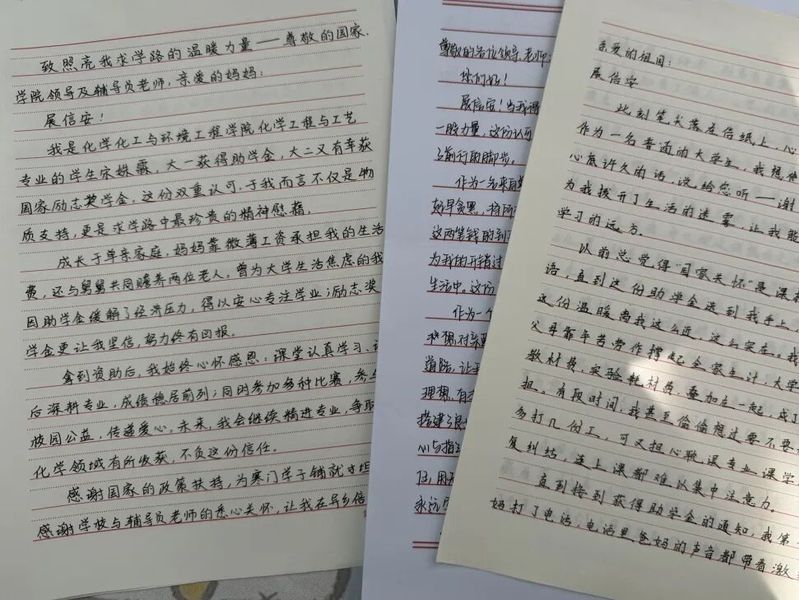 致照亮我求学路的温暖力量——尊敬的国家、
学院领导及辅导员老师,亲爱的妈妈:
展信安!
我是化学化工与环境工程学院化学工程与工艺
专业的学生宋姝霖,大一获得助学金,大二又有幸获
国家励志奖学金。这份双重认可,于我而言不仅是物
质支持,更是求学路中最珍贵的精神慰藉。
成长于单亲家庭,妈妈靠微薄工资承担我的生活
费,还与舅舅共同赡养两位老人。曾为大学生活焦虑的我
因助学金缓解了经济压力,得以安心专注学业;励志奖
学金更让我坚信,努力终有回报。
拿到资助后,我始终心怀感恩:课堂认真学习、
后深耕专业,成绩稳居前列;同时参加多种比赛,参
校园公益,传递爱心。未来,我会继续精进专业,争取
化学领域有所收获,不负这份信任。
感谢国家的政策扶持,为寒门学子铺就
感谢学校与辅导员老师的悉心关怀,让我在异乡倍
尊敬的各位领导、老师:
你们好!
展信安!当我得
一股力量,这份认可
了前行的脚步。
作为一名来自
好早贪黑,将所
这两笔钱的到
为我的开销过
生活中。这份
作为一个
我想对亲
道院,让
理想,有
搭建了很
心与指
伍,用
永远
亲爱的祖国:
展信安
此刻笔尖落在信纸上,心
作为一名普通的大学生,我想把
心底许久的话,说给您听——谢
为我拨开了生活的迷雾,让我能
学习的远方。
以前总觉得“国家关怀”是课
语,直到这份助学金送到我手上,
这份温暖离我这么近,这么实在。我
父母靠辛苦劳作撑起全家生计,大学
教材费、实验耗材费,叠加在一起,成了
担。有段时间,我甚至偷偷想过要不要
多打几份工,可又担心耽误专业课学
复纠结,连上课都难以集中注意力。
直到接到获得助学金的通知,我第
妈打了电话,电话里爸妈的声音都带着激